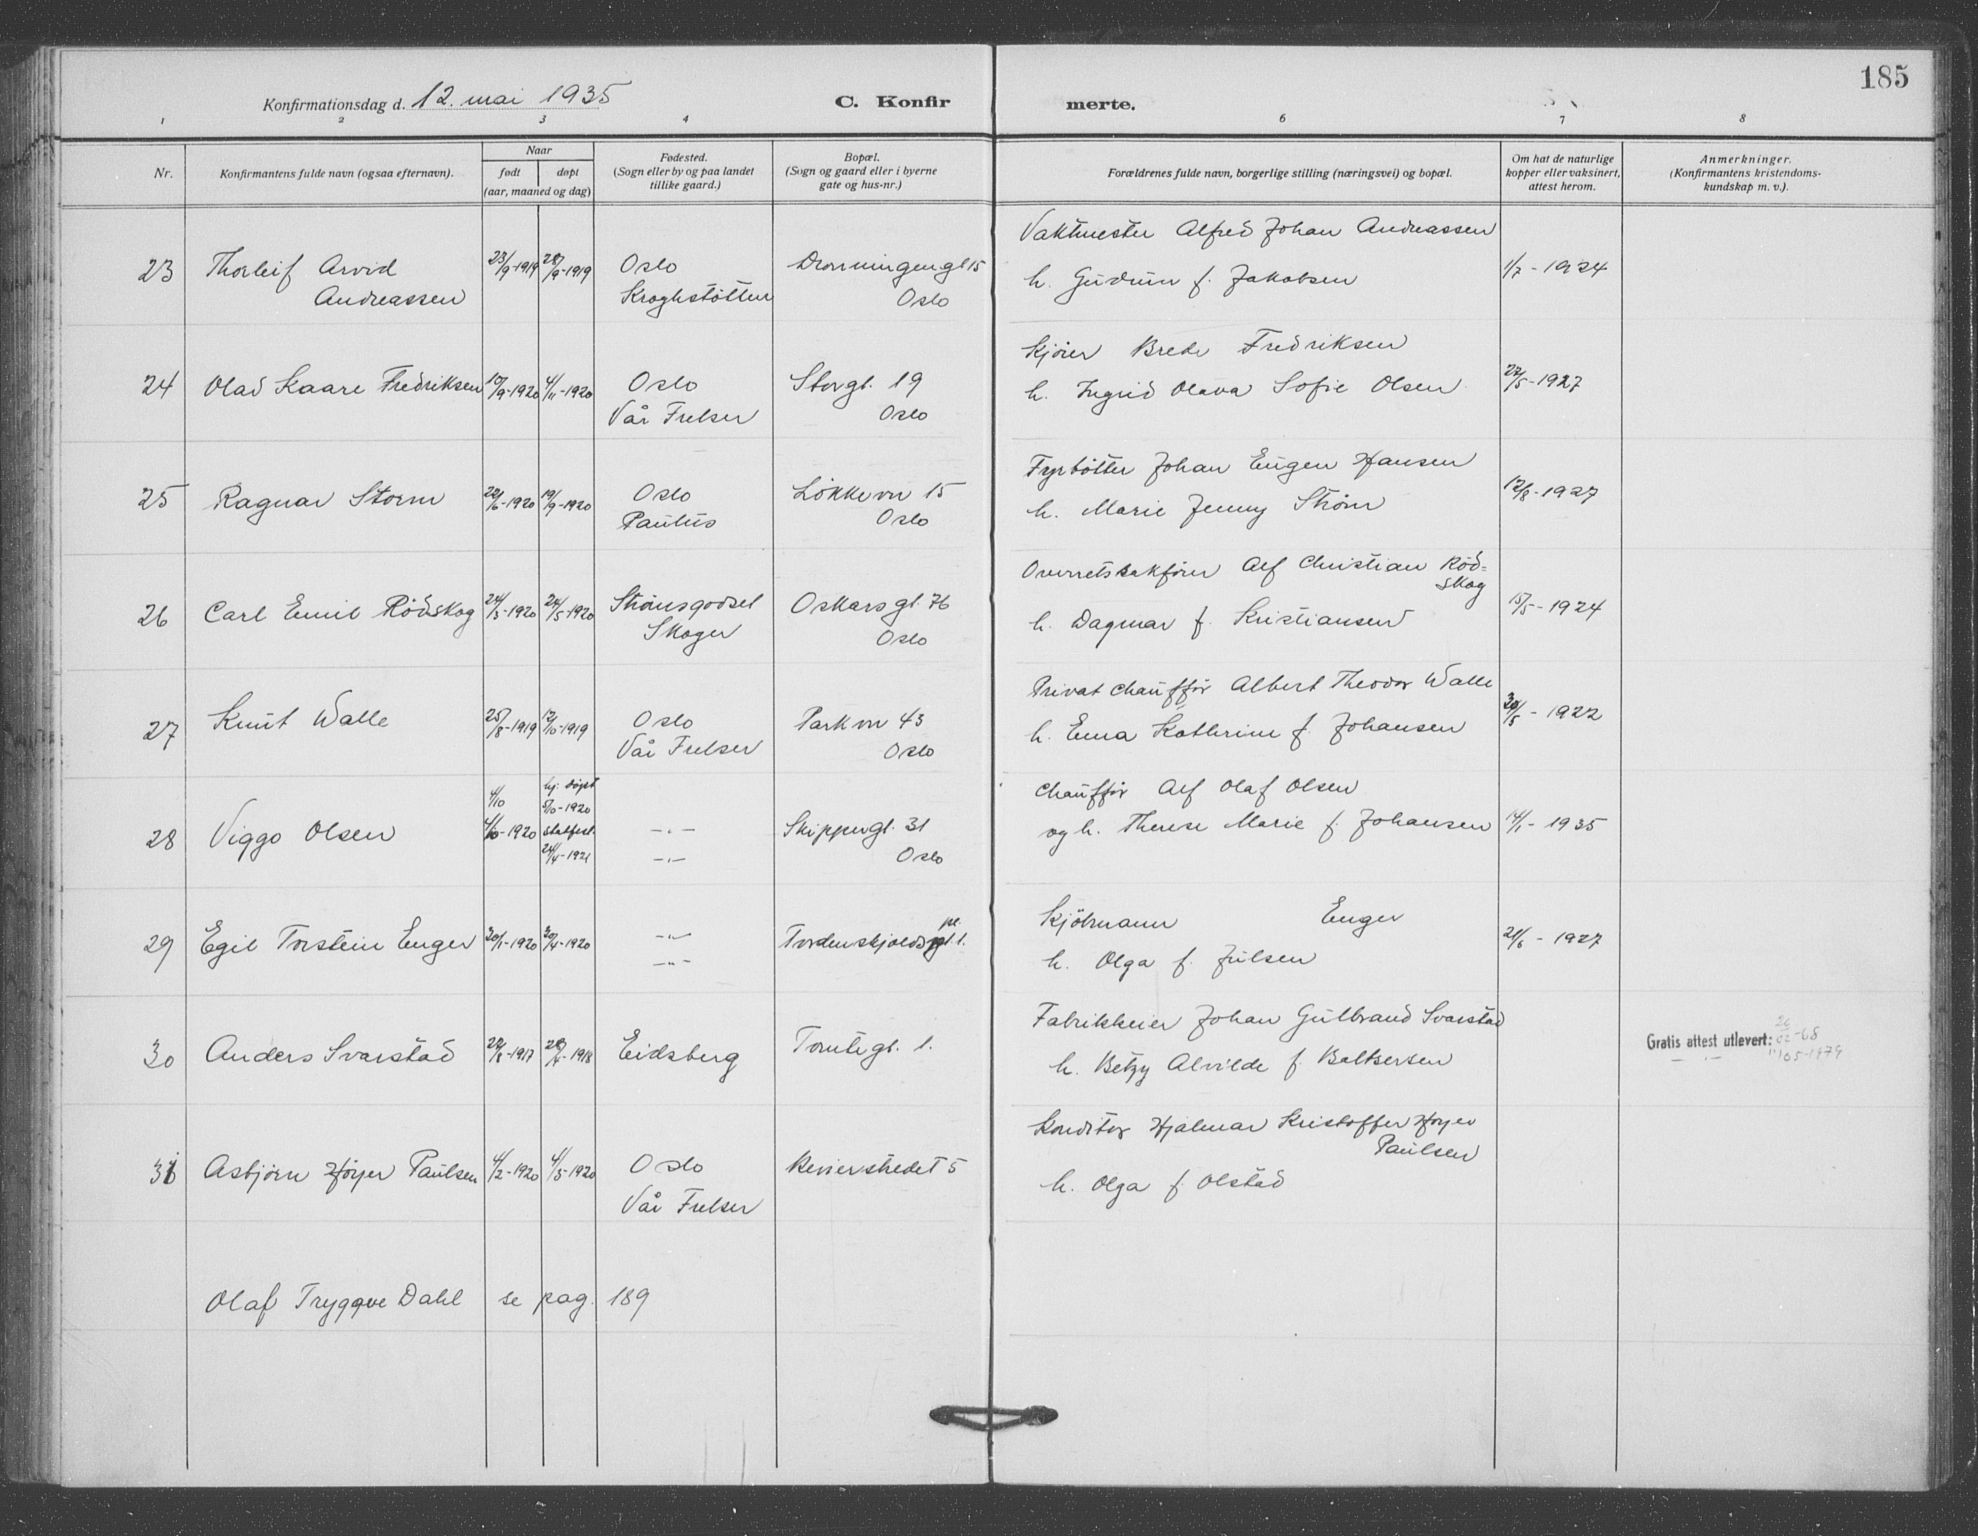 185
Konfirmationsdag d. 12. mai 1935
C. Konfirmerte.
1 2 3 4 6 7 8
Nr.
Konfirmantens fulde navn (ogsaa efternavn).
Naar
født
døpt
(aar, maaned og dag)
Fødested.
(Sogn eller by og paa landet
tillike gaard.)
Bopæl.
(Sogn og gaard eller i byerne
gate og hus-nr.)
Forældrenes fulde navn, borgerlige stilling (næringsvei) og bopæl.
Om hat de naturlige
kopper eller vaksinert,
attest herom.
Anmerkninger.
(Konfirmantens kristendoms-
kundskap m. v.).
Vaktmester Alfred Johan Andreassen
23 Thorleif Arvid 23/9-1919 28/9-1919 Oslo Dronningengt 15 h. Gudrun f. Jakobsen 1/7-1924
Andreassen Kroghstøtten Oslo
Kjører Brede Fredriksen
24 Olad Kaare Fredriksen 10/9-1920 4/11-1920 Oslo Storgt. 19 h. Ingrid Olava Sofie Olsen 27/5-1927
Vår Frelser Oslo
Fyrbøtter Johan Eugen Hansen
25 Ragnar Storm 22/6-1920 19/9-1920 Oslo Løkkevn 15 h. Marie Jenny Strøm 12/8-1927
Paulus Oslo
Overretssakfører Alf Christian Röd=
skog
26 Carl Emil Rödskog 24/3-1920 24/5-1920 Strømsgodset Oskarsgt. 76 h. Dagmar f. Kristiansen 15/5-1924
Skoger Oslo
Privat chauffør Albert Theodor Walle
27 Knut Walle 25/8-1919 12/10-1919 Oslo Parkvn 43 h. Erna Kathrine f. Johansen 30/5-1922
Vår Frelser Oslo
Chauffør Alf Olaf Olsen
4/10 hj. døpt
5/10-1920
28 Viggo Olsen 4/10-1920 statfest. -"- Skippergt. 31 og h. Therese Marie f. Johansen 14/1-1935
24/4-1921 -"- Oslo
Kjöbmann Enger
pl.
29 Egil Torstein Enger 30/1-1920 30/4-1920 -"- Tordenskjoldsgt. 1. h. Olga f. Julsen 21/6-1927
-"-
Fabrikkeier Johan Gulbrand Svarstad
30 Anders Svarstad 22/8-1917 28/4-1918 Eidsberg Tomtegt. 1. h. Betzy Alvilde f. Baltsersen Gratis attest utlevert: 26/02-68
- " - 11/05-1979
Konditor Hjalmar Kristoffer Høyer
Paulsen
31 Asbjørn Høyer Paulsen 4/2-1920 4/5-1920 Oslo Revierstredet 5 h. Olga f. Olstad
Vår Frelser
Olaf Tryggve Dahl se pag. 189